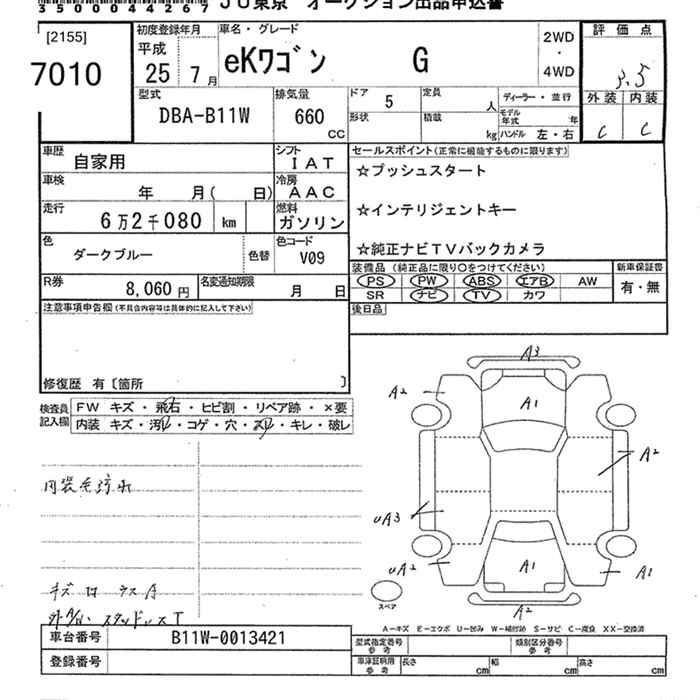 35000442 67 JU東京 オークション出品申込書
[2155] 7010
初度登録年月 平成 25年 7月
車名・グレード eKワゴン G
2WD・4WD
評価点 3.5
外装 C 内装 C
型式 DBA-B11W
排気量 660 CC
ドア 5 形状
定員 人 積載 kg
ディーラー・並行
モデル年式 年
ハンドル 左・右
車歴 自家用
シフト IAT
車検 年 月( 日)
冷房 AAC
走行 6万2千080 km
燃料 ガソリン
色 ダークブルー 色替
色コード V09
R券 8,060円
名変通知期限 月 日
セールスポイント(正常に機能するものに限ります)
☆プッシュスタート
☆インテリジェントキー
☆純正ナビTVバックカメラ
装備品(純正品に限り○をつけてください)
PS PW ABS エアB AW
SR ナビ TV カワ
新車保証書 有・無
後日品
注意事項申告欄(不具合内容等は具体的に記入して下さい)
修復歴 有〔箇所 〕
検査員記入欄
FW キズ・飛石・ヒビ割・リペア跡・×要
内装 キズ・汚れ・コゲ・穴・スレ・キレ・破レ
A3
A2
A1
A2
UA3
UA2
A1
A1
A2
スペア
A−キズ E−エクボ U−凹み W−補修跡 S−サビ C−腐食 XX−交換済
車台番号 B11W-0013421
登録番号
型式指定番号 参考
類別区分番号 参考
車庫証明用 参考
長さ cm 幅 cm 高さ cm